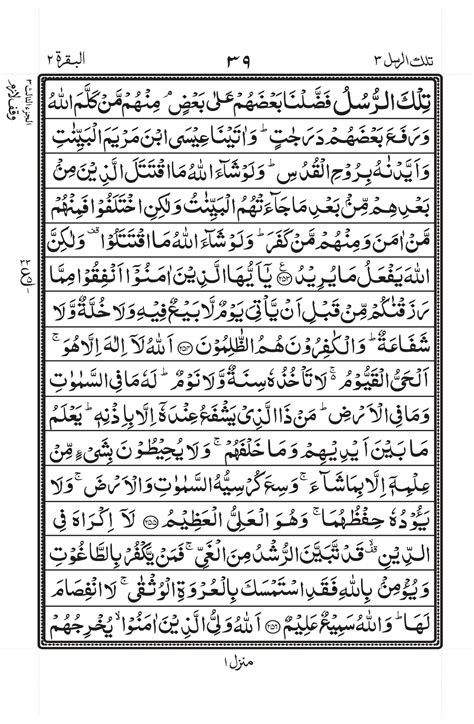 تلك الرسل ٣ ٣٩ البقرة ٢
الجزء الثالث ٣
وقف لازم
تِلْكَ الرُّسُلُ فَضَّلْنَا بَعْضَهُمْ عَلٰى بَعْضٍ ۘ مِنْهُمْ مَّنْ كَلَّمَ اللّٰهُ
وَرَفَعَ بَعْضَهُمْ دَرَجٰتٍ ؕ وَاٰتَيْنَا عِيْسَى ابْنَ مَرْيَمَ الْبَيِّنٰتِ
وَاَيَّدْنٰهُ بِرُوْحِ الْقُدُسِ ؕ وَلَوْ شَآءَ اللّٰهُ مَا اقْتَتَلَ الَّذِيْنَ مِنْۢ
بَعْدِهِمْ مِّنْۢ بَعْدِ مَا جَآءَتْهُمُ الْبَيِّنٰتُ وَلٰكِنِ اخْتَلَفُوْا فَمِنْهُمْ
مَّنْ اٰمَنَ وَمِنْهُمْ مَّنْ كَفَرَ ؕ وَلَوْ شَآءَ اللّٰهُ مَا اقْتَتَلُوْا ۟ وَلٰكِنَّ
اللّٰهَ يَفْعَلُ مَا يُرِيْدُ ﴿۲۵۳﴾ يٰۤاَيُّهَا الَّذِيْنَ اٰمَنُوْۤا اَنْفِقُوْا مِمَّا
رَزَقْنٰكُمْ مِّنْ قَبْلِ اَنْ يَّاْتِيَ يَوْمٌ لَّا بَيْعٌ فِيْهِ وَلَا خُلَّةٌ وَّلَا
شَفَاعَةٌ ؕ وَالْكٰفِرُوْنَ هُمُ الظّٰلِمُوْنَ ﴿۲۵۴﴾ اَللّٰهُ لَاۤ اِلٰهَ اِلَّا هُوَ ۚ
اَلْحَيُّ الْقَيُّوْمُ ۚ لَا تَاْخُذُهٗ سِنَةٌ وَّلَا نَوْمٌ ؕ لَهٗ مَا فِي السَّمٰوٰتِ
وَمَا فِي الْاَرْضِ ؕ مَنْ ذَا الَّذِيْ يَشْفَعُ عِنْدَهٗۤ اِلَّا بِاِذْنِهٖ ؕ يَعْلَمُ
مَا بَيْنَ اَيْدِيْهِمْ وَمَا خَلْفَهُمْ ۚ وَلَا يُحِيْطُوْنَ بِشَيْءٍ مِّنْ
عِلْمِهٖۤ اِلَّا بِمَا شَآءَ ۚ وَسِعَ كُرْسِيُّهُ السَّمٰوٰتِ وَالْاَرْضَ ۚ وَلَا
يَـُٔوْدُهٗ حِفْظُهُمَا ۚ وَهُوَ الْعَلِيُّ الْعَظِيْمُ ﴿۲۵۵﴾ لَاۤ اِكْرَاهَ فِي
الدِّيْنِ ۟ قَدْ تَّبَيَّنَ الرُّشْدُ مِنَ الْغَيِّ ۚ فَمَنْ يَّكْفُرْ بِالطَّاغُوْتِ
وَيُؤْمِنْۢ بِاللّٰهِ فَقَدِ اسْتَمْسَكَ بِالْعُرْوَةِ الْوُثْقٰى ۚ لَا انْفِصَامَ
لَهَا ؕ وَاللّٰهُ سَمِيْعٌ عَلِيْمٌ ﴿۲۵۶﴾ اَللّٰهُ وَلِيُّ الَّذِيْنَ اٰمَنُوْا ۙ يُخْرِجُهُمْ
منزل ١